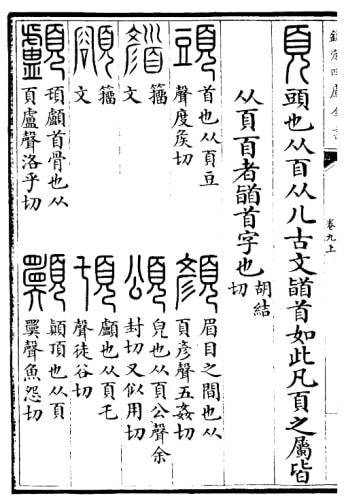 欽定四庫全書
卷九上
頁頭也从𦣻从儿古文䭫首如此凡頁之屬皆
从頁百者䭫首字也胡結切
頭首也从頁豆
聲度矦切
顏眉目之間也从
頁彥聲五姦切
籒
文
頌皃也从頁公聲余
封切又似用切
籒
文
頊顱也从頁乇
聲徒谷切
顱䪼顱首骨也从
頁盧聲洛乎切
顚頂也从頁
㒹聲魚怨切